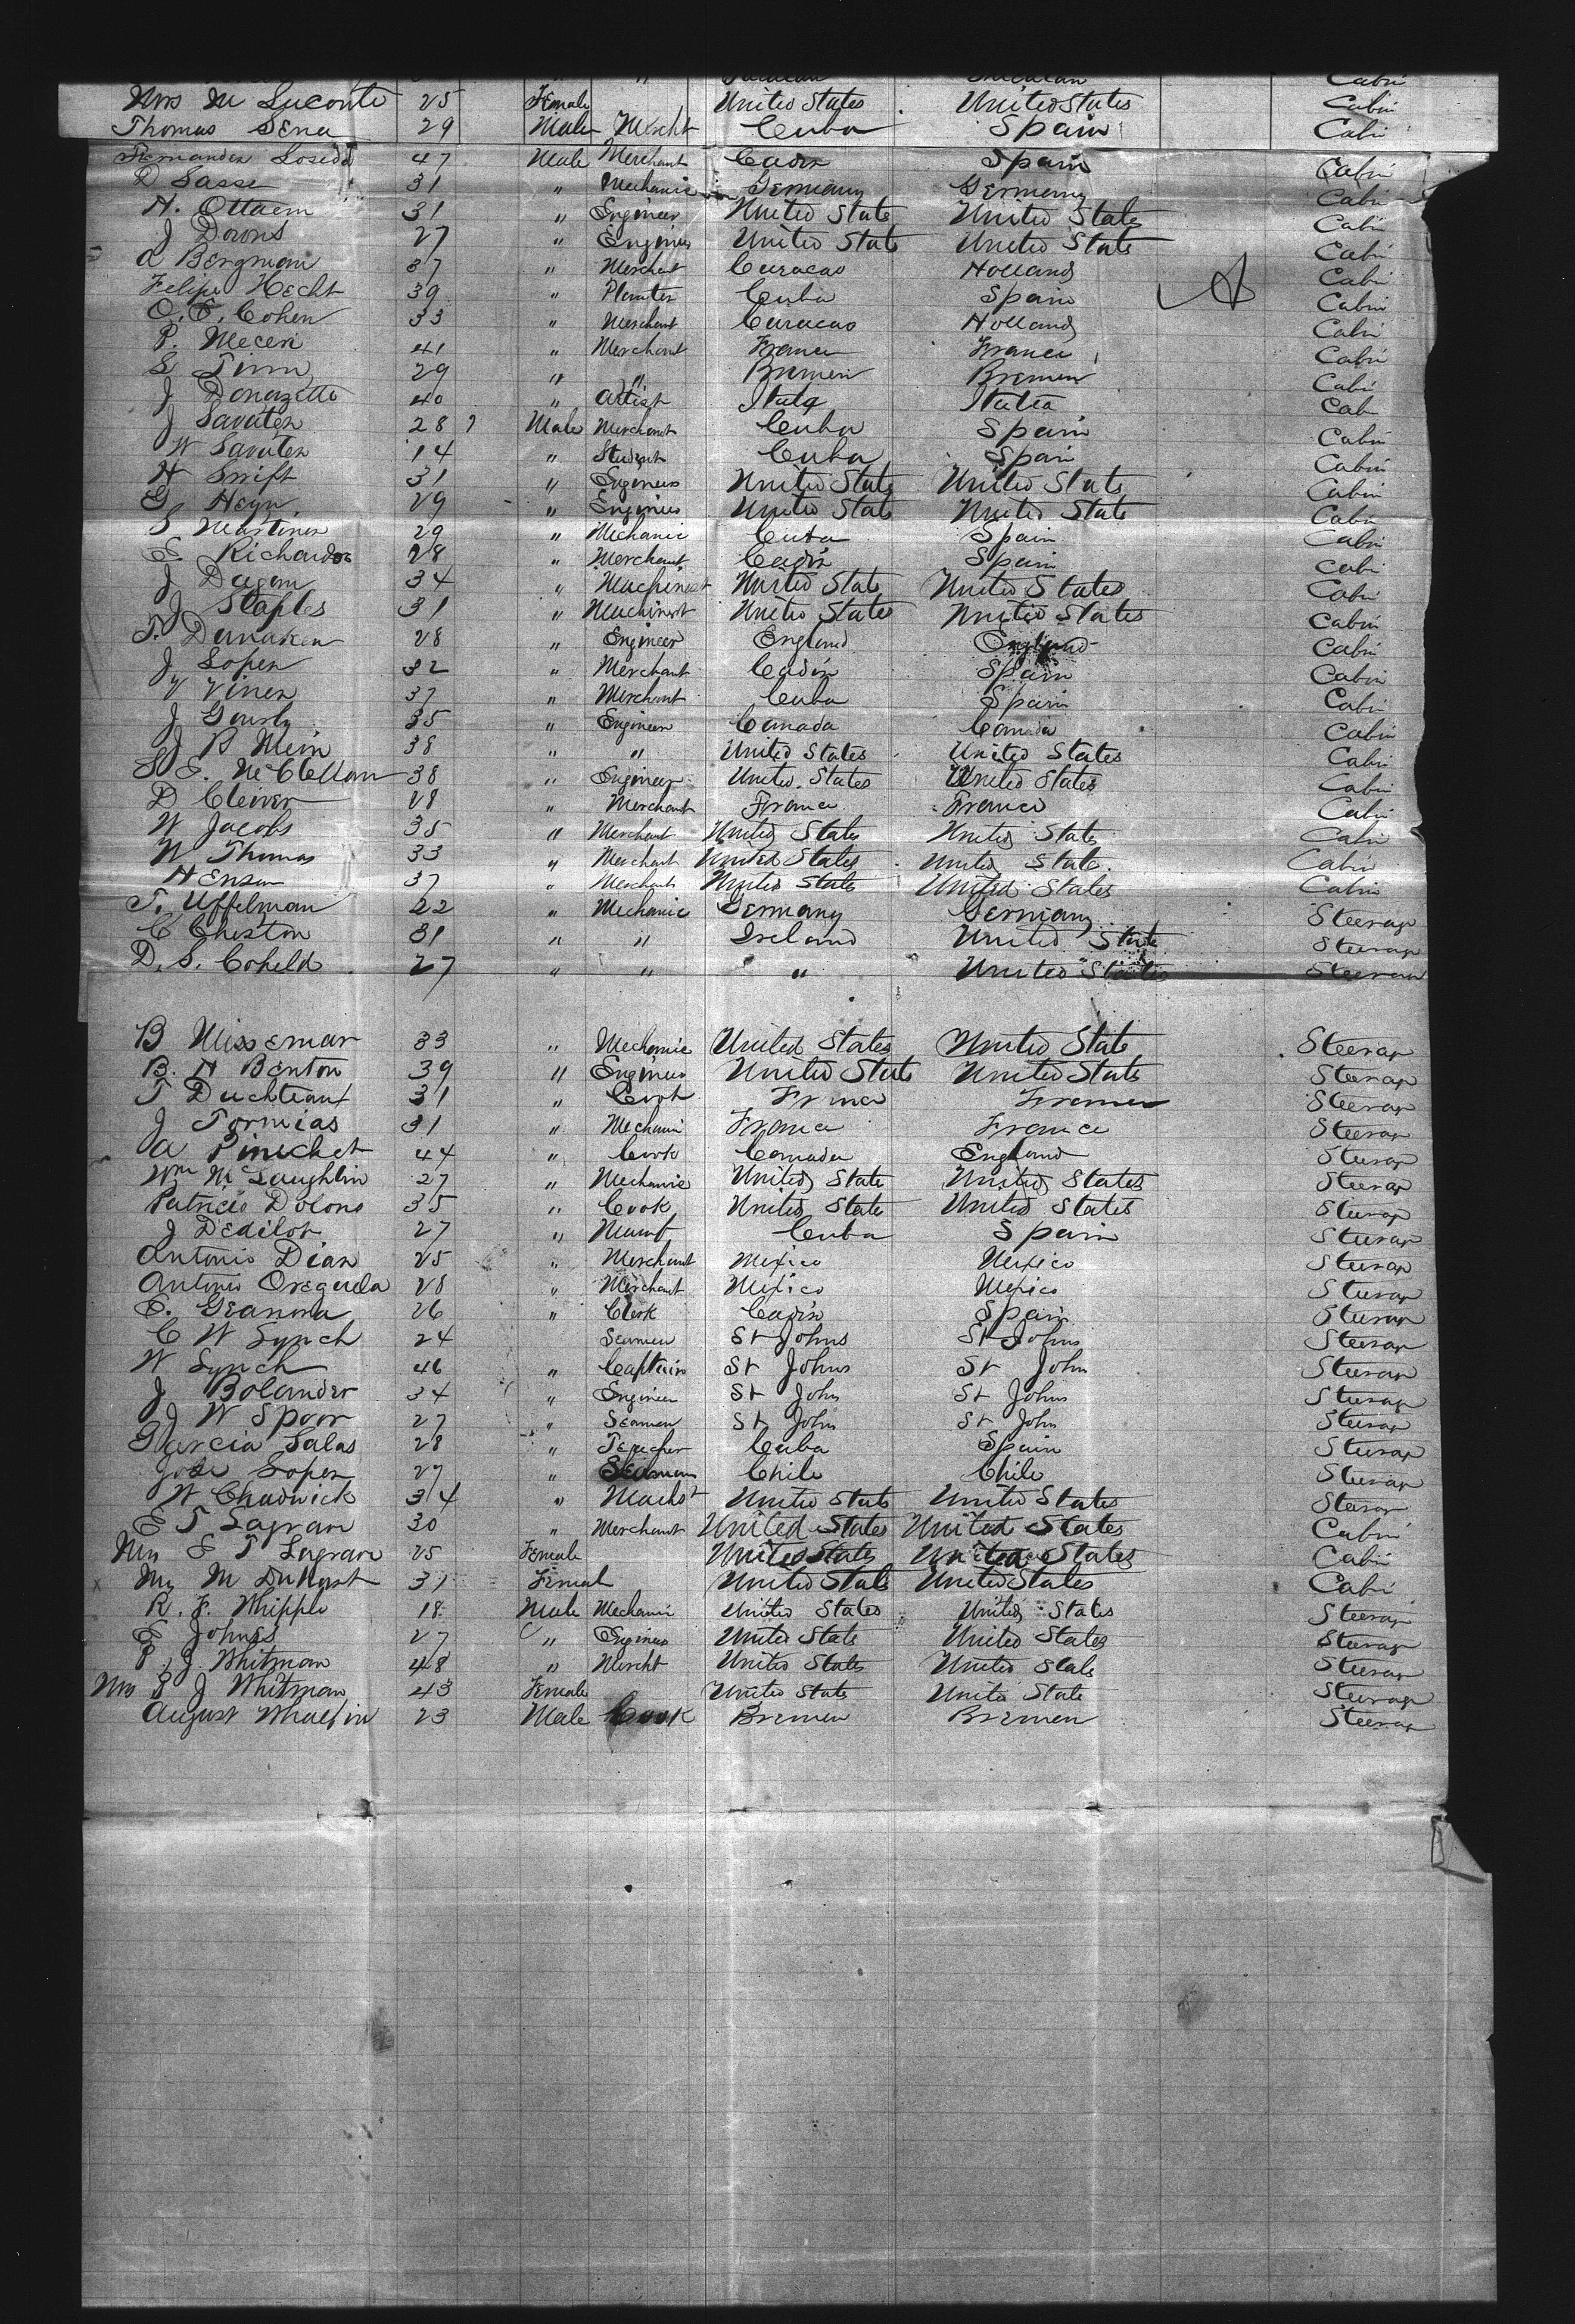 Mrs M Leconte 25 Female United States United States Cabin
Thomas Sena 29 Male Mercht Cuba Spain Cabi
Fernandez Loseda 47 Male Merchant Cadiz Spain Cabin
D Sasse 31 " Mechanic Germany Germany Cabi
H. 31 " Engineer United State United States Cabi
J Downs 27 " Engineer United State United State Cabi
A Bergman 37 " Merchant Curacao Holland Cabi
Felipe Hecht 39 " Planter Cuba Spain Cabin
O. E. Cohen 33 " Merchant Curacao Holland Cabin
P. 41 " Merchant France France Cabin
L Timm 29 " " Bremen Bremen Cabi
J Donazetto 40 " Artist Italy Italia Cab
J Savater 28 Male Merchant Cuba Spain Cabin
W Savater 14 " Student Cuba Spain Cabin
H Swift 31 " Engineer United State United State Cabin
G Heyn 29 " Engineer United State United State Cabin
S Martinez 29 " Mechanic Cuba Spain Cabi
E Richardos 28 " Merchant Cadiz Spain Cabi
J Dugan 34 " Machinest United State United States Cabi
J Staples 31 " Machinist United States United States Cabin
T. 28 " Engineer England England Cabin
J Lopez 32 " Merchant Cadiz Spain Cabin
V Vinez 37 " Merchant Cuba Spain Cabi
J Gourly 35 " Engineer Canada Canada Cabin
J R Mein 38 " " United States United States Cabi
S E. McClellan 38 " Engineer United States United States Cabi
D Cleiver 28 " Merchant France France Cabi
W Jacobs 35 " Merchant United States United States Cabi
W Thomas 33 " Merchant United States United State Cabin
H Enson 37 " Merchant United State United States Cabin
T. Uffelman 22 " Mechanic Germany Germany Steerage
C Cheston 31 " " Ireland United State Steerage
D. S. Cofield 27 " " " United States Steerage
B Wissemar 33 " Mechanic United States United State Steerage
B. H Benton 39 " Engineer United State United States Steerage
T Duchteant 31 " Cook France France Steerage
J Tormias 31 " Mechani France France Steerage
A Pinechet 44 " Cook Canada England Steerage
Wm McLaughlin 27 " Mechanic United State United States Steerage
Patricio Dolons 35 " Cook United State United States Steerage
J Dedilot 27 " Cuba Spain Steerage
Antonio Diaz 25 " Merchant Mexico Mexico Steerage
Antonio Oregueda 28 " Merchant Mexico Mexico Steerage
E. Geanma 26 " Clerk Cadiz Spain Steerage
C W Lynch 24 Seamen St Johns St Johns Steerage
W Lynch 46 " Captain St Johns St John Steerage
J Bolander 34 " Engineer St John St Johns Steerage
J W Spoor 27 " Seamen St John St John Steerage
Garcia Salas 28 " Teacher Cuba Spain Steerage
Jose Lopez 27 " Seaman Chile Chile Steerage
W Chadwick 34 " Machst United State United States Steerage
E T Lagrave 30 " Merchant United States United States Cabin
Mrs E T Lagrave 25 Female United States United States Cabin
Mrs M 31 Female United State United States Cabi
R. F. Whipple 18 Male Mechanic United States United States Steerage
E Johnes 27 " Engineer United State United States Steerage
P. J. Whitman 48 " Mercht United States United State Steerage
Mrs P J Whitman 43 Female United State United State Steerage
August 23 Male Cook Bremen Bremen Steerage